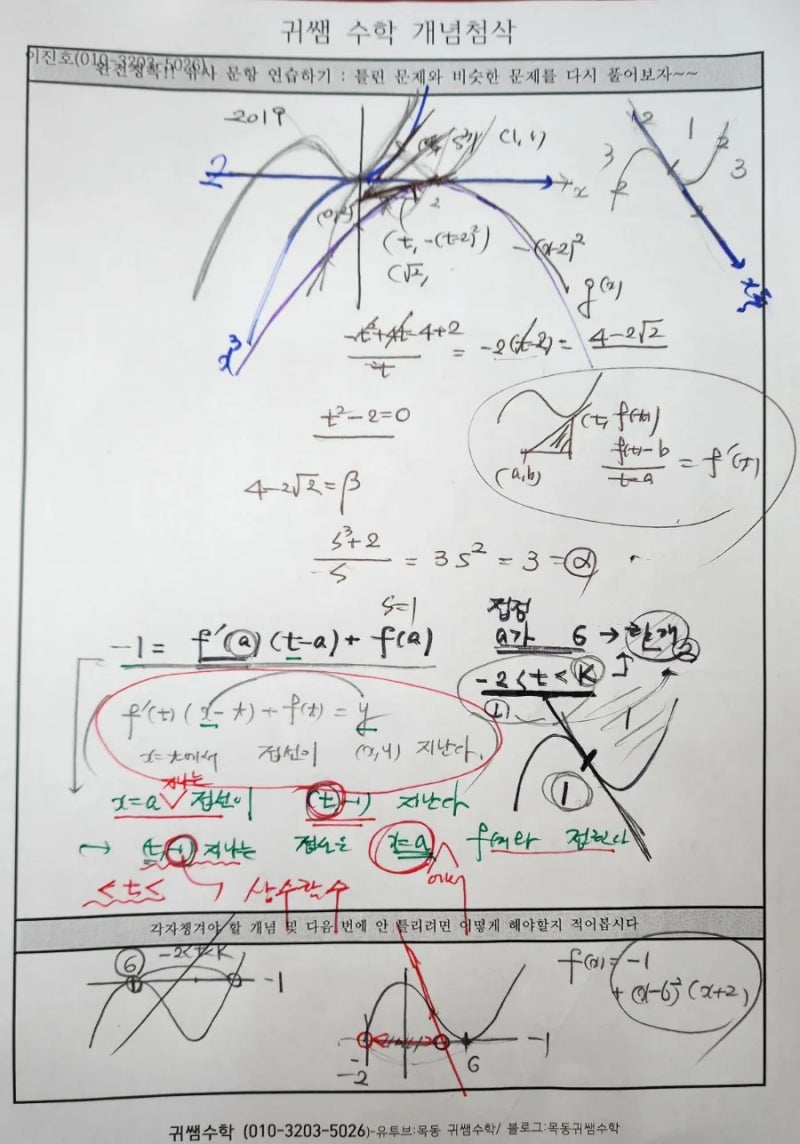 귀쌤 수학 개념첨삭
이진호(010-3203-5026)
완전정복!! 유사 문항 연습하기 : 틀린 문제와 비슷한 문제를 다시 풀어보자~~
2019
(1, 1)
1
2
3
2
3
x
2
(t, -(t-2)²)
-(x-2)²
(√2,
g(x)
x³
-t²+4t-4+2 / t = -2(t-2) = 4-2√2
t²-2=0
(t, f(t))
(a,b)
f(t)-b / t-a = f'(t)
4-2√2=β
s³+2 / s = 3s² = 3 = α
s=1
접점
-1 = f'(a)(t-a)+f(a)
a가 6 → 한개
-2<t<K
f'(t)(x-t)+f(t)=y
x=t에서 접선이 (x,y) 지난다.
1
1
지나는
x=a 접선이 (t,-1) 지난다
→ (t,-1) 지나는 접선은 x=a f(x)와 접한다
에서
<t< 상수함수
각자챙겨야 할 개념 및 다음 번에 안 틀리려면 어떻게 해야할지 적어봅시다
-2<t<K
6
-1
f(x)=-1
+(x-6)²(x+2)
-1
-2
6
귀쌤수학 (010-3203-5026)-유투브:목동 귀쌤수학/ 블로그:목동귀쌤수학